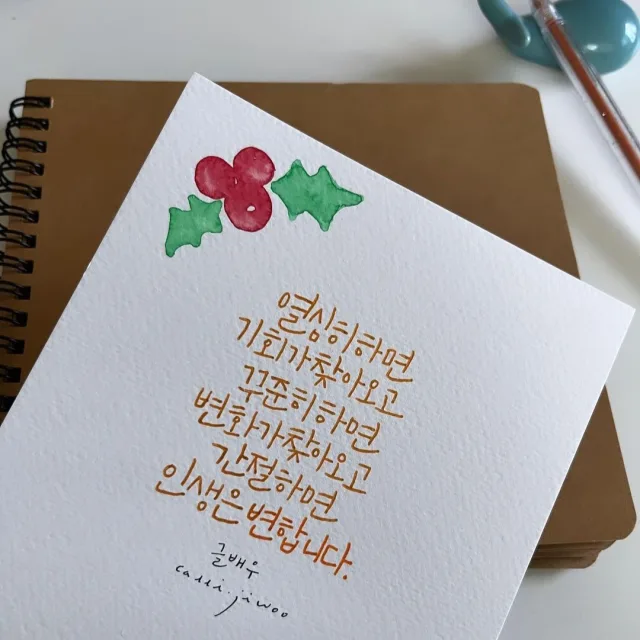 열심히하면
기회가찾아오고
꾸준히하면
변화가찾아오고
간절하면
인생은변합니다.
글배우
calli.jiwoo